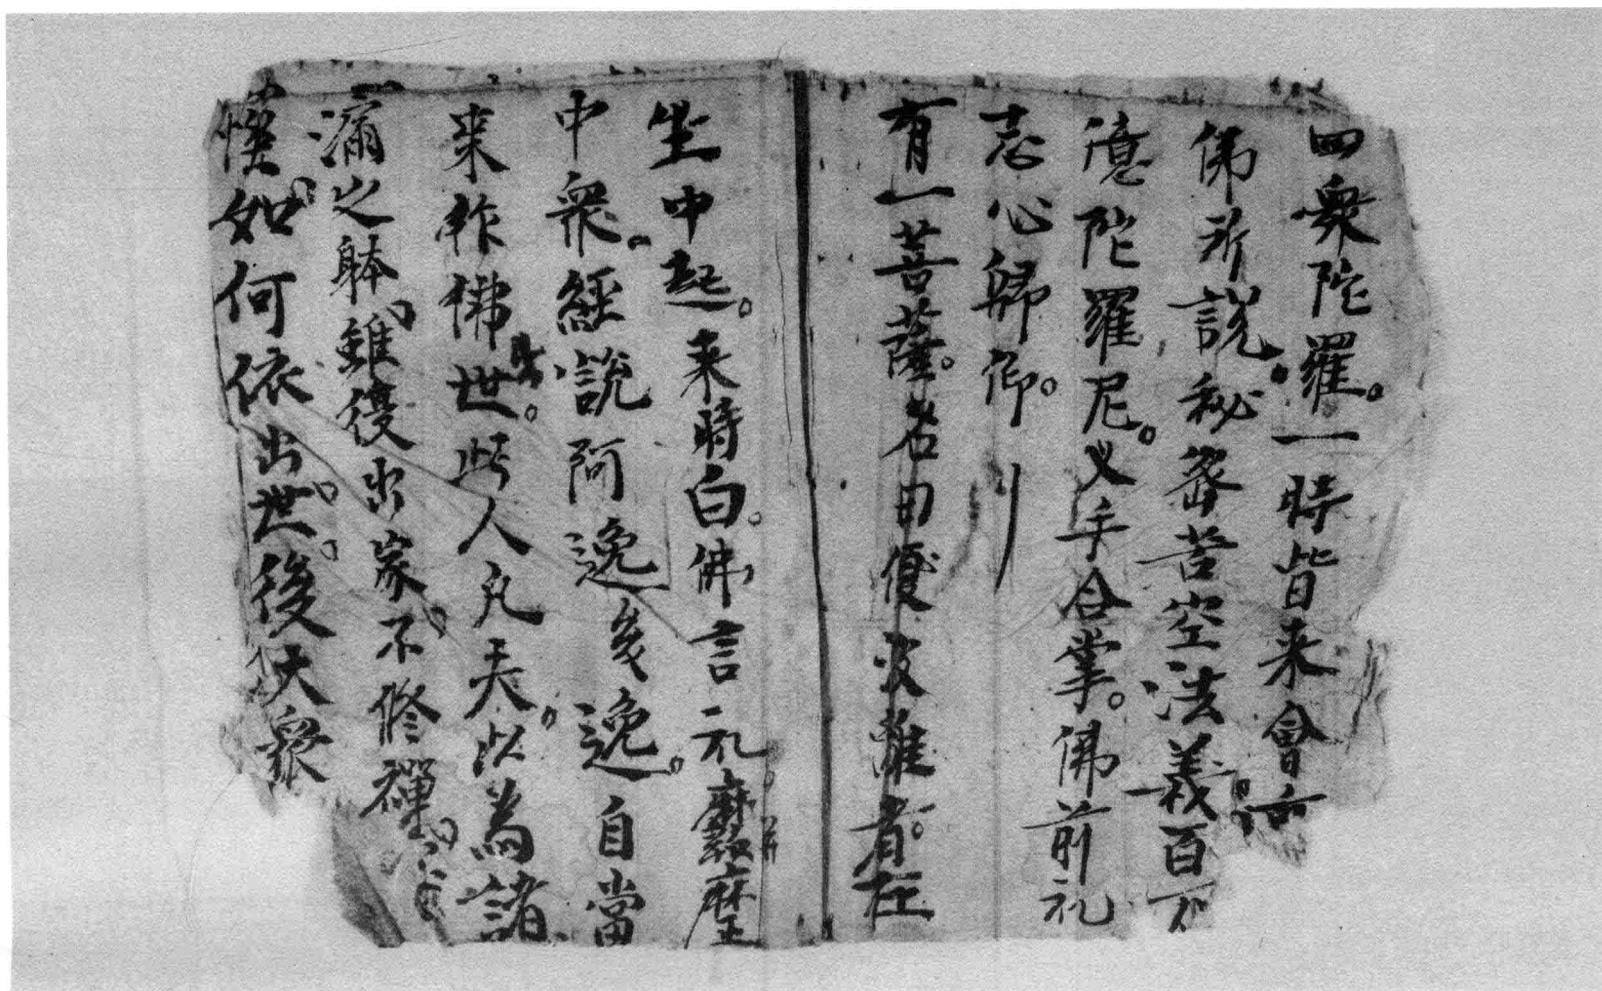 四衆陀羅。一時皆来會
佛所説。秘密苦空法義。百
億陀羅尼。叉手合掌。佛前礼
志心歸仰。
有一菩薩。名曰優波離者。在
坐中起。来時白。佛言礼
中衆。經説阿逸多逸。自當
来作佛世。此人凡夫。以為諸
漏之躰。雖復出家。不修禪。
如何依出世。後大衆